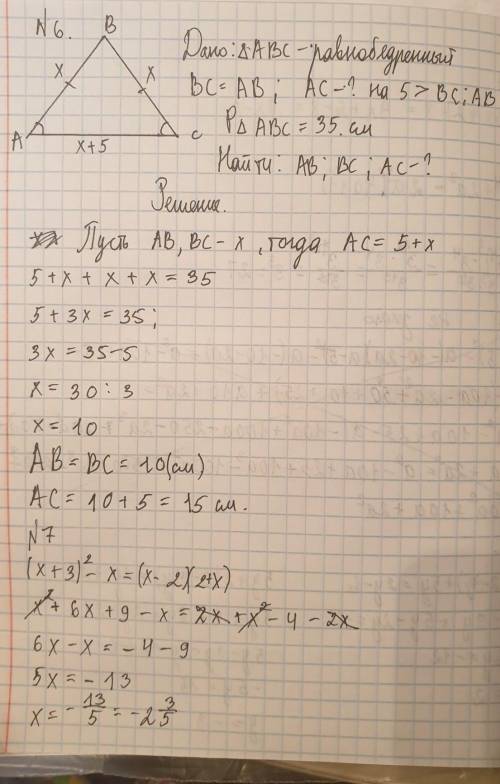 N6.
B
x
x
A
C
x+5
Дано: △ABC - равнобедренный
BC = AB ; AC-? на 5 > BC; AB
P△ ABC = 35. см
Найти: AB; BC; AC-?
Решение.
Пусть AB, BC - x, тогда AC = 5+x
5 + x + x + x = 35
5 + 3x = 35;
3x = 35-5
x = 30 : 3
x = 10
AB = BC = 10(см)
AC = 10 + 5 = 15 см.
N7
(x+3)² - x = (x-2)(2+x)
x² + 6x + 9 - x = 2x + x² - 4 - 2x
6x - x = -4 - 9
5x = -13
x = -13/5 = -2 3/5